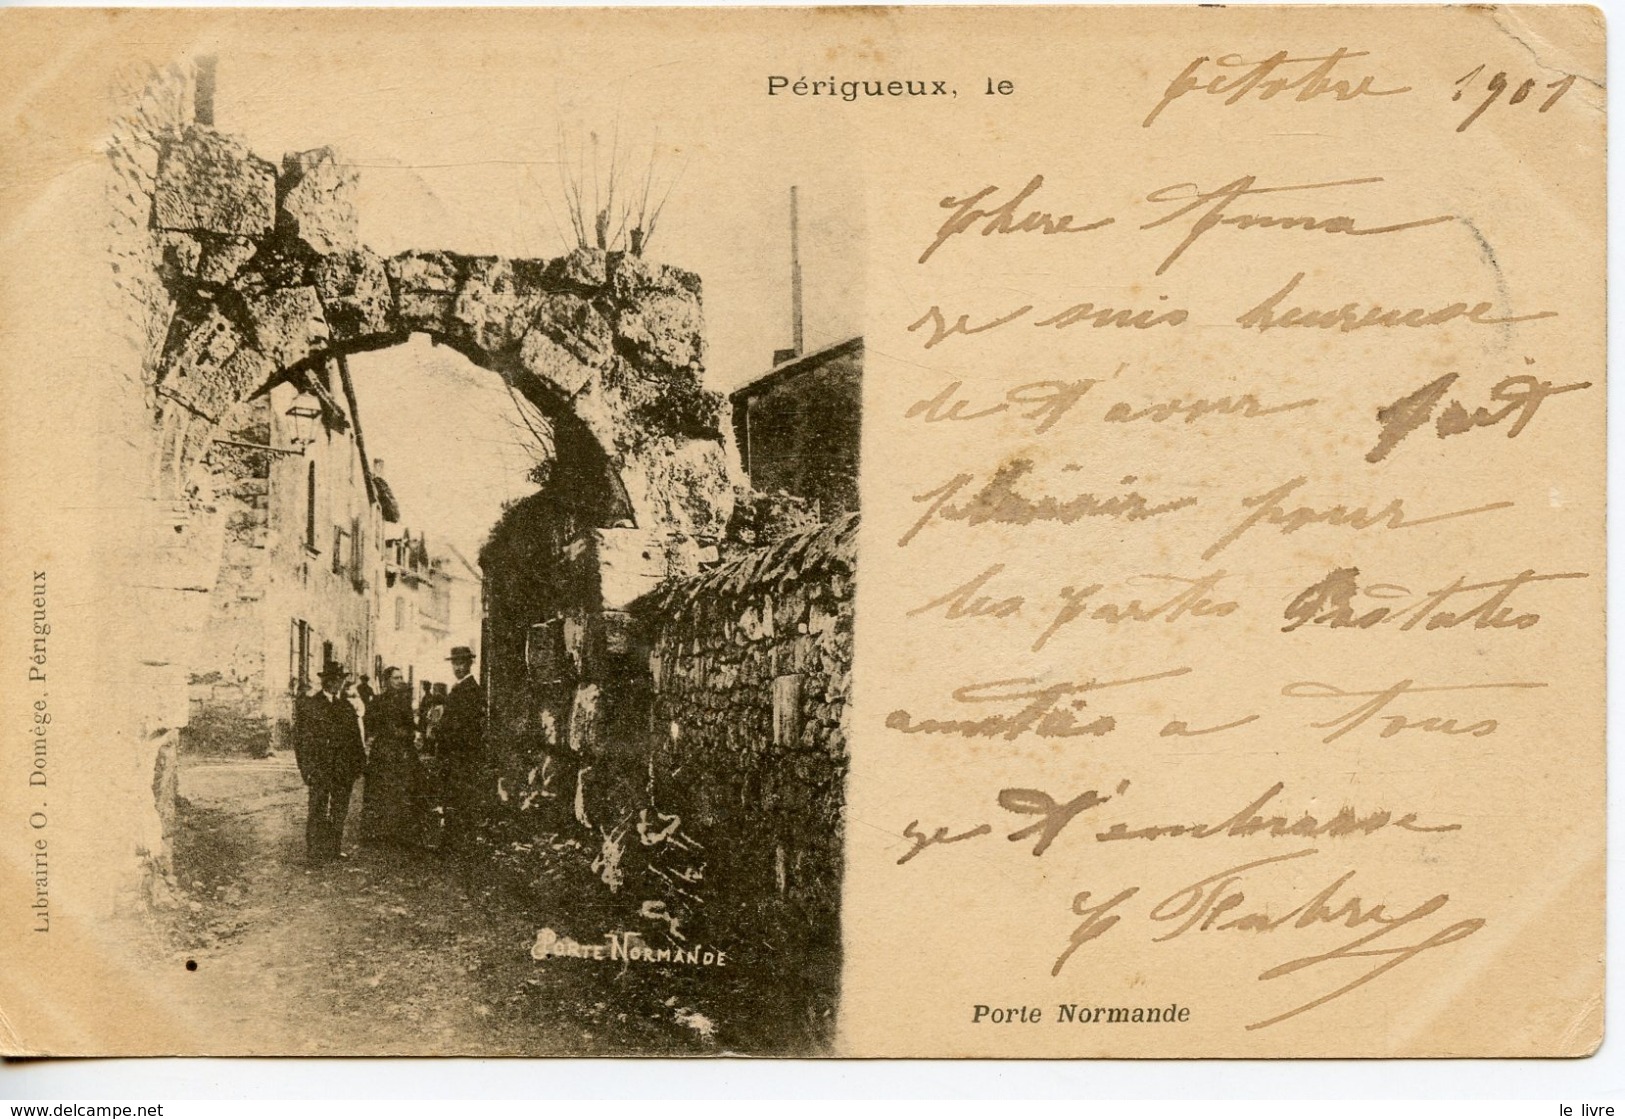 Périgueux, le octobre 1901
Chere Anna
je suis heureuse
de t'avoir fait
plaisir pour
les cartes Postales
amitiés a tous
je t'embrasse
C Fabry
Porte Normande
PORTE NORMANDE
Librairie O. Domège, Périgueux
www.delcampe.net
le livre